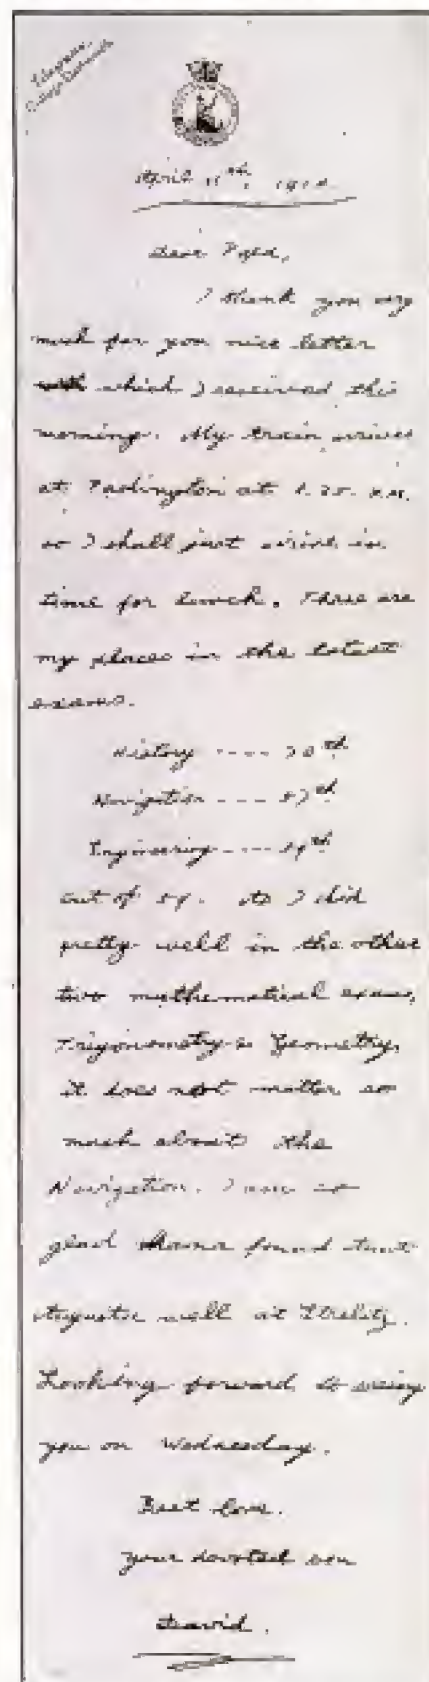 Telegrams,
College Dartmouth
April 11th, 19
Dear Papa,
I thank you very
much for you nice letter
which I received this
morning. My train arrives
at Padington at 1.25. P.M.
so I shall just arrive in
time for lunch. These are
my places in the latest
exams.
History ---- 30th
Navigation ---- 57th
Engineering ---- 59th
out of 59. As I did
pretty well in the other
two mathematical exams,
Trigonometry & Geometry,
it does not matter so
much about the
Navigation. I am so
glad Mama found Aunt
Augusta well at Strelitz.
Looking forward to seeing
you on Wednesday.
Best love.
your devoted son
David.